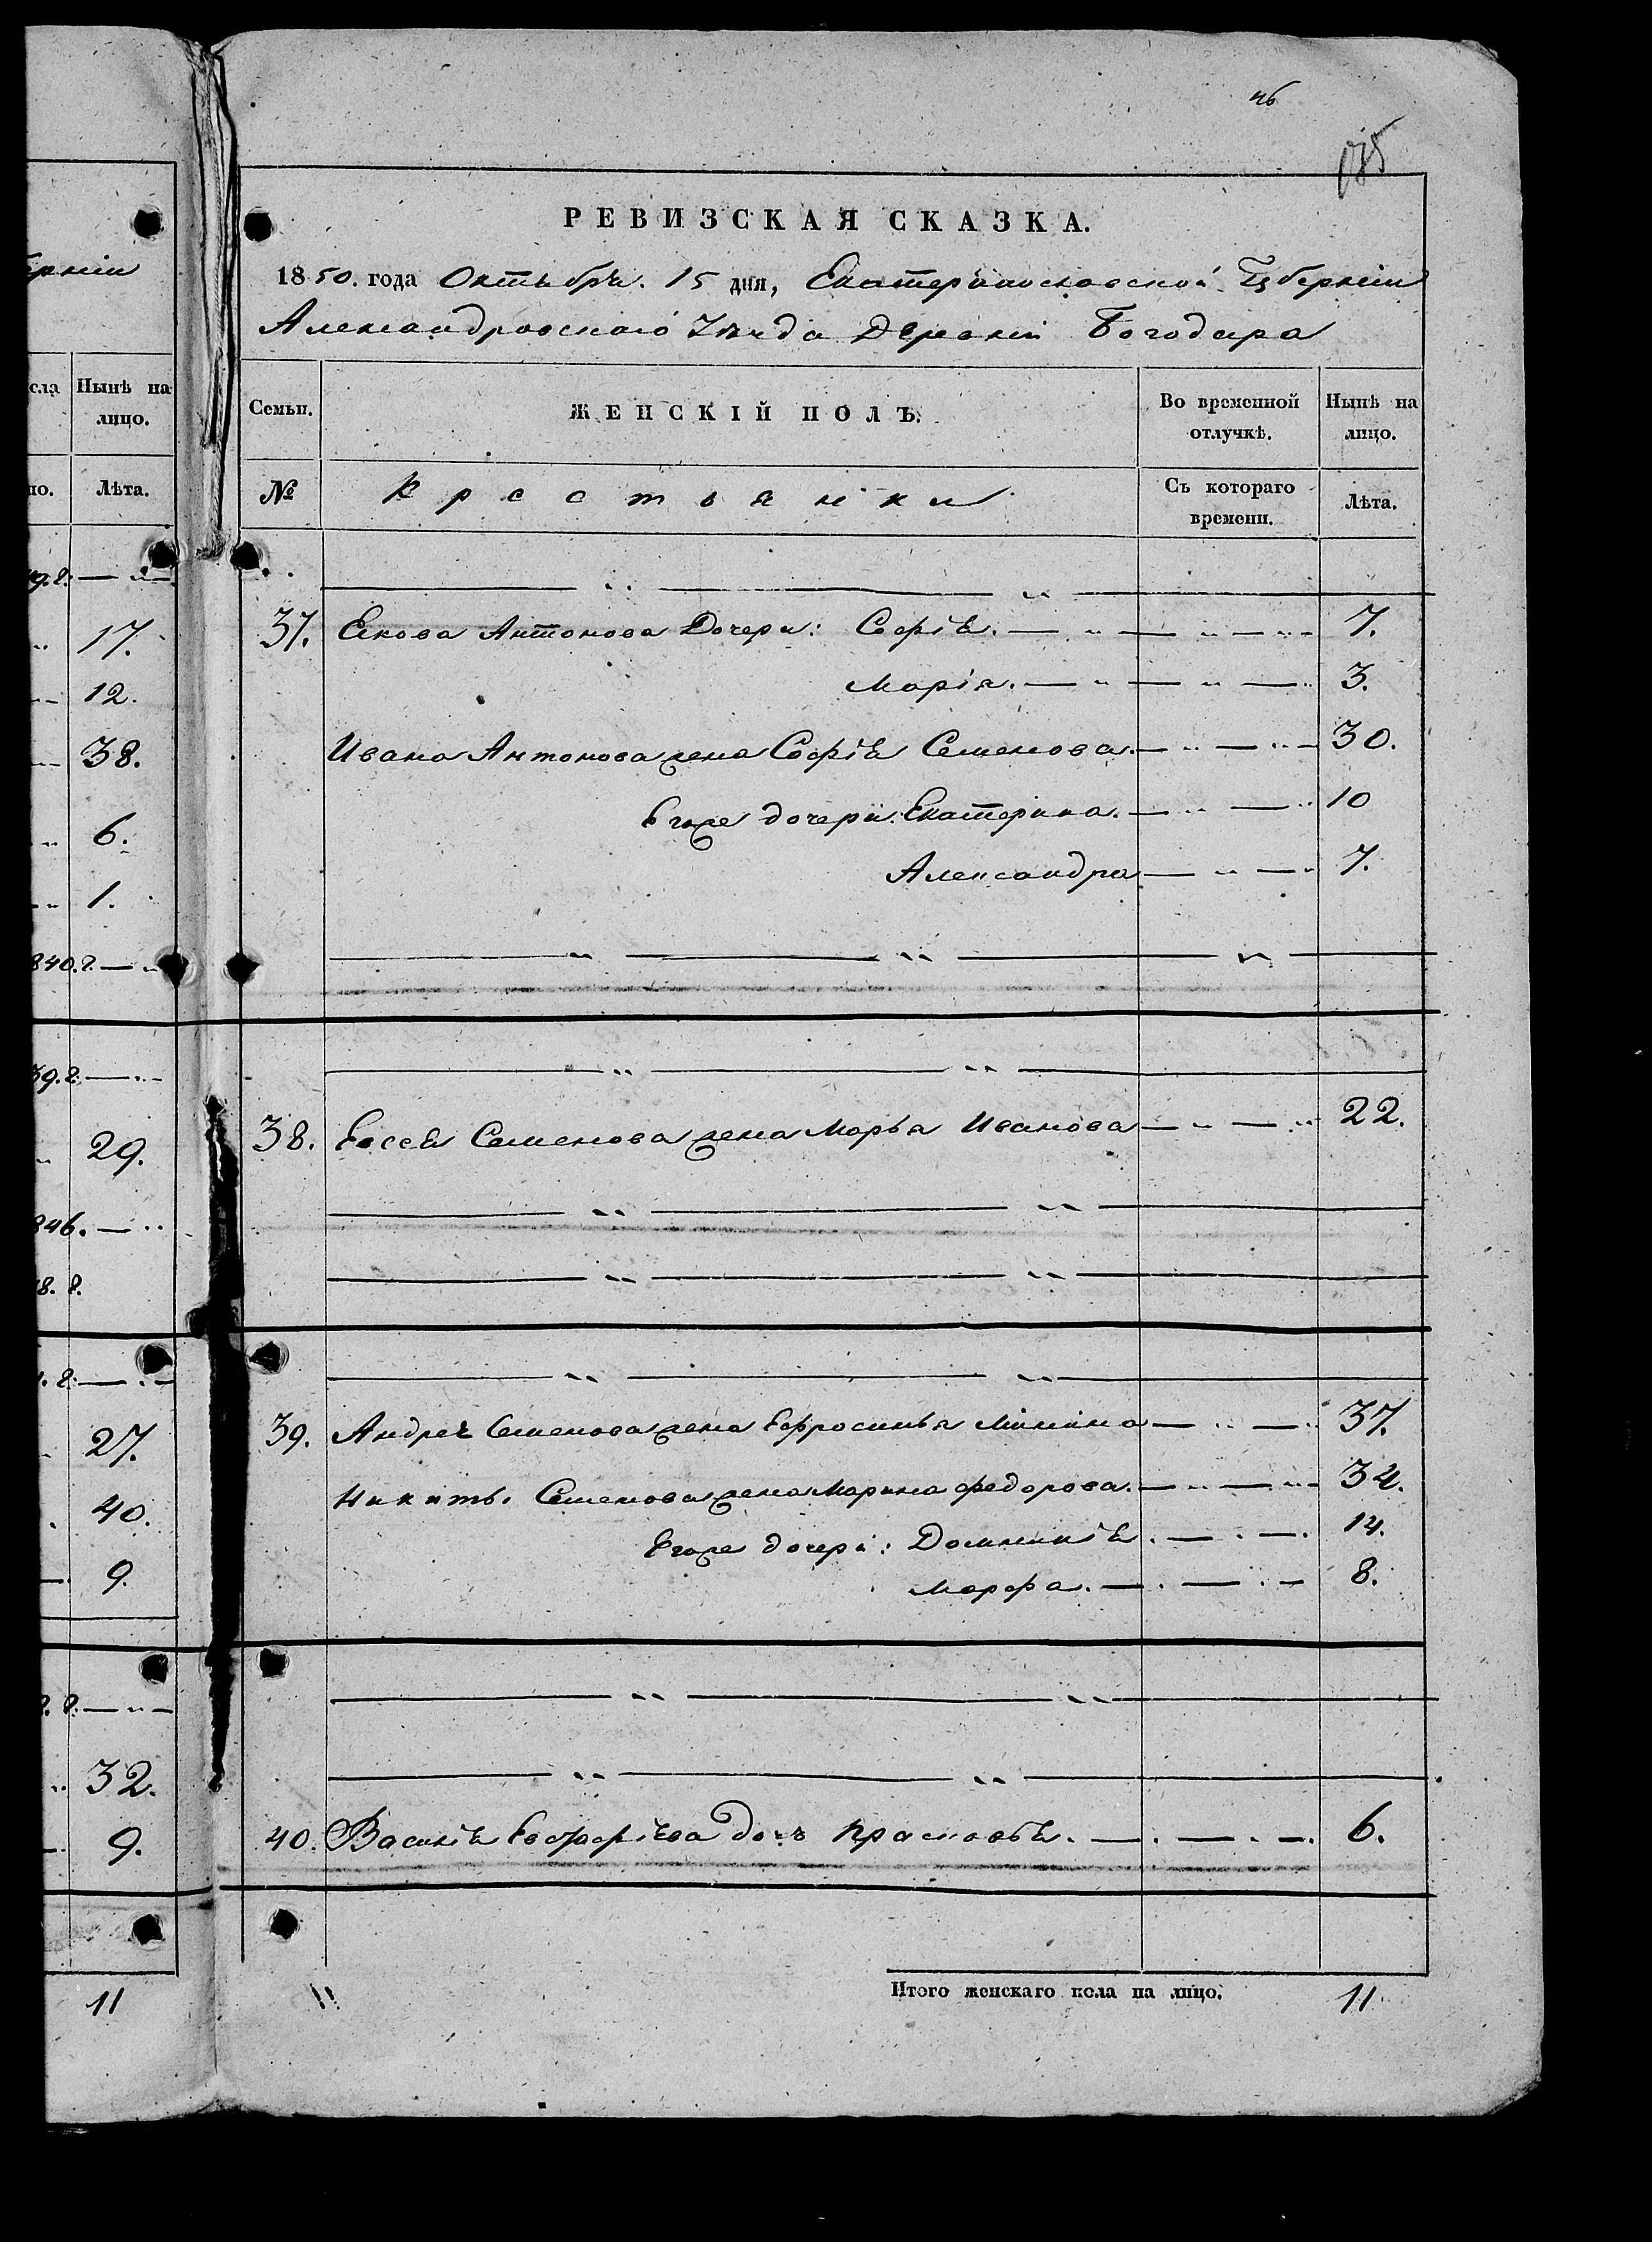 46
РЕВИЗСКАЯ СКАЗКА.
1850. года Октября. 15 дня, Екатеринославской Губернiи
Александровского Уѣзда Деревни Богодара
Семьи. ЖЕНСКIЙ ПОЛЪ. Во временной отлучкѣ. Нынѣ на лицо.
№ Крестьянки Съ котораго времени. Лѣта.
37. Екова Антонова Дочери: Софiя. 7.
Марiя. 3.
Ивана Антонова жена Софiя Семенова. 30.
Егоже дочери: Екатерина. 10
Александра 7.
38. Евсея Семенова жена Марья Иванова 22.
39. Андрея Семенова жена Ефросинья Минина 37.
Никиты. Семенова жена Марина Федорова. 34.
Егоже дочери: Домникiя. 14.
Марфа. 8.
40. Василiя Евстафiева дочь Прасковья. 6.
Итого женскаго пола на лицо. 11
ернiи
сла Нынѣ на лицо.
но. Лѣта.
49.г.
17.
12.
38.
6.
1.
840.г.
39.г.
29.
846.
8.г.
27.
40.
9.
32.
9.
11